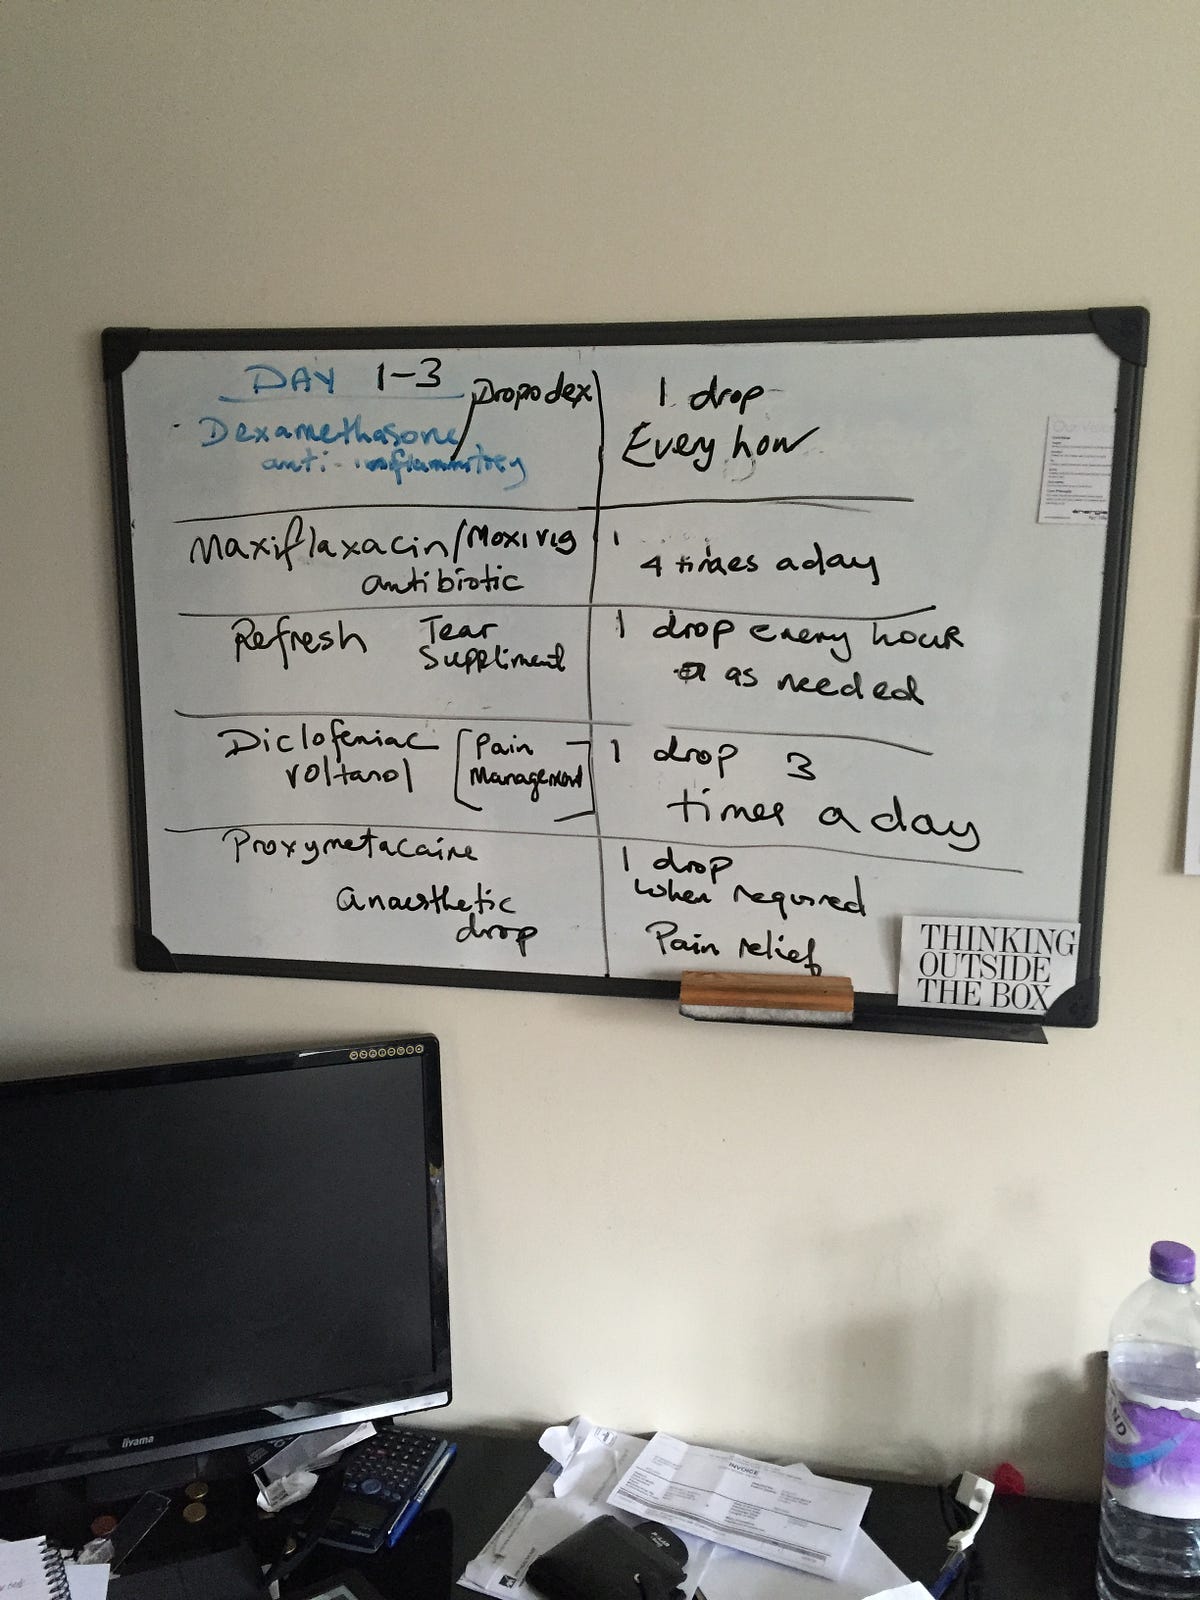 DAY 1-3
Dropodex
Dexamethasone
anti-inflammitory
1 drop
Every hour
Maxiflaxacin/Moxivig
antibiotic
1
4 times a day
Refresh Tear
Suppliment
1 drop every hour
as needed
Diclofeniac
voltarol
Pain
Management
1 drop 3
times a day
Proxymetacaine
Anaesthetic
drop
1 drop
when required
Pain relief
THINKING
OUTSIDE
THE BOX
iiyama
INVOICE